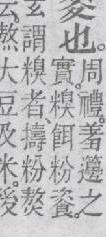 麥也。
周禮。羞籩之
實。糗餌粉餈。
玄謂糗者、擣粉熬
云、熬大豆及米。